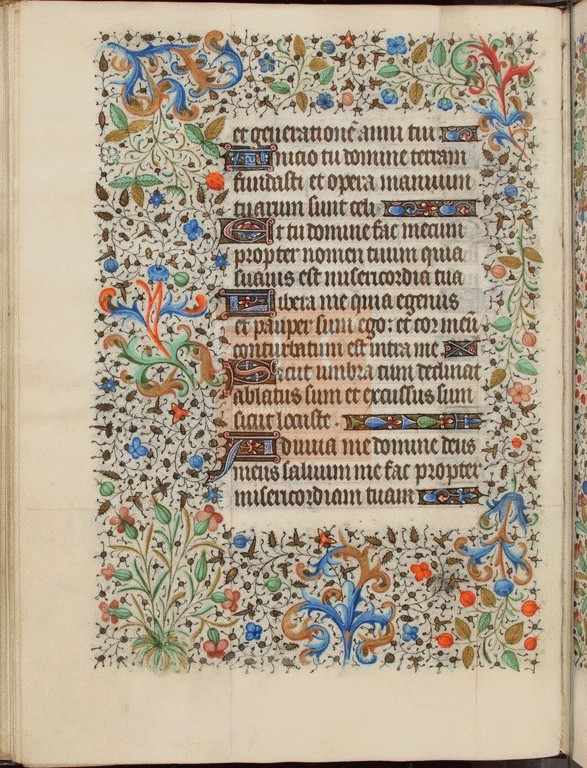 et generatione anni tui
Inicio tu domine terram
fundasti et opera manuum
tuarum sunt celi
Et tu domine fac mecum
propter nomen tuum quia
suauis est misericordia tua
Libera me quia egenus
et pauper sum ego: et cor meu
conturbatum est intra me
Sicut umbra cum declinat
ablatus sum et excussus sum
sicut locuste.
Adiuua me domine deus
meus saluum me fac propter
misericordiam tuam